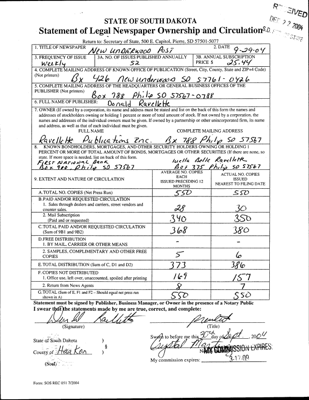 RECEIVED
DEC 27 2004
STATE OF SOUTH DAKOTA
Statement of Legal Newspaper Ownership and Circulation
Return to: Secretary of State, 500 E. Capitol, Pierre, SD 57501-5077
1. TITLE OF NEWSPAPER New Underwood Post
2. DATE 9-29-04
3. FREQUENCY OF ISSUE Weekly
3A. NO. OF ISSUES PUBLISHED ANNUALLY 52
3B. ANNUAL SUBSCRIPTION PRICE $ 25.44
4. COMPLETE MAILING ADDRESS OF KNOWN OFFICE OF PUBLICATION (Street, City, County, State and ZIP+4 Code)
(Not printers) Bx 426 New Underwood SD 57761-0426
5. COMPLETE MAILING ADDRESS OF THE HEADQUARTERS OR GENERAL BUSINESS OFFICES OF THE
PUBLISHER (Not printer) Box 788 Philip SD 57567-0788
6. FULL NAME OF PUBLISHER: Donald Ravellette
7. OWNER (If owned by a corporation, its name and address must be stated and list on the back of this form the names and
addresses of stockholders owning or holding 1 percent or more of total amount of stock. If not owned by a corporation, the
names and addresses of the individual owners must be given. If owned by a partnership or other unincorporated firm, its name
and address, as well as that of each individual must be given.
FULL NAME
COMPLETE MAILING ADDRESS
Ravellette Publications Inc. Bx 788 Philip SD 57567
8. KNOWN BONDHOLDERS, MORTGAGES, AND OTHER SECURITY HOLDERS OWNING OR HOLDING 1
PERCENT OR MORE OF TOTAL AMOUNT OF BONDS, MORTGAGES OR OTHER SECURITIES (If there are none, so
state. If more space is needed, list on back of this form.
First National Bank
Box Philip SD 57567
Ravellette
Box 375 Philip SD 57567
9. EXTENT AND NATURE OF CIRCULATION
AVERAGE NO. COPIES EACH ISSUES PRECEDING 12 MONTHS
ACTUAL NO. COPIES ISSUES NEAREST TO FILING DATE
A. TOTAL NO. COPIES (Net Press Run) 550 550
B. PAID AND/OR REQUESTED CIRCULATION
1. Sales through dealers and carriers, street vendors and counter sales. 28 30
2. Mail Subscription
(Paid and or requested) 340 350
C. TOTAL PAID AND/OR REQUESTED CIRCULATION
(Sum of 9B1 and 9B2) 368 380
D. FREE DISTRIBUTION
1. BY MAIL, CARRIER OR OTHER MEANS - -
2. SAMPLES, COMPLIMENTARY AND OTHER FREE COPIES 5 6
E. TOTAL DISTRIBUTION (Sum of C, D1 and D2) 373 386
F. COPIES NOT DISTRIBUTED
1. Office use, left over, unaccounted, spoiled after printing 169 157
2. Return from News Agents 8 7
G. TOTAL (Sum of E, F1 and F2 - Should equal net press run shown in A) 550 550
Statement must be signed by Publisher, Business Manager, or Owner in the presence of a Notary Public
I swear that the statements made by me are true, correct, and complete:
(Signature)
President
(Title)
State of South Dakota )
County of Haakon )
(Seal)
Sworn to before me this 30th day of Sept 2004
MY COMMISSION EXPIRES
My commission expires: